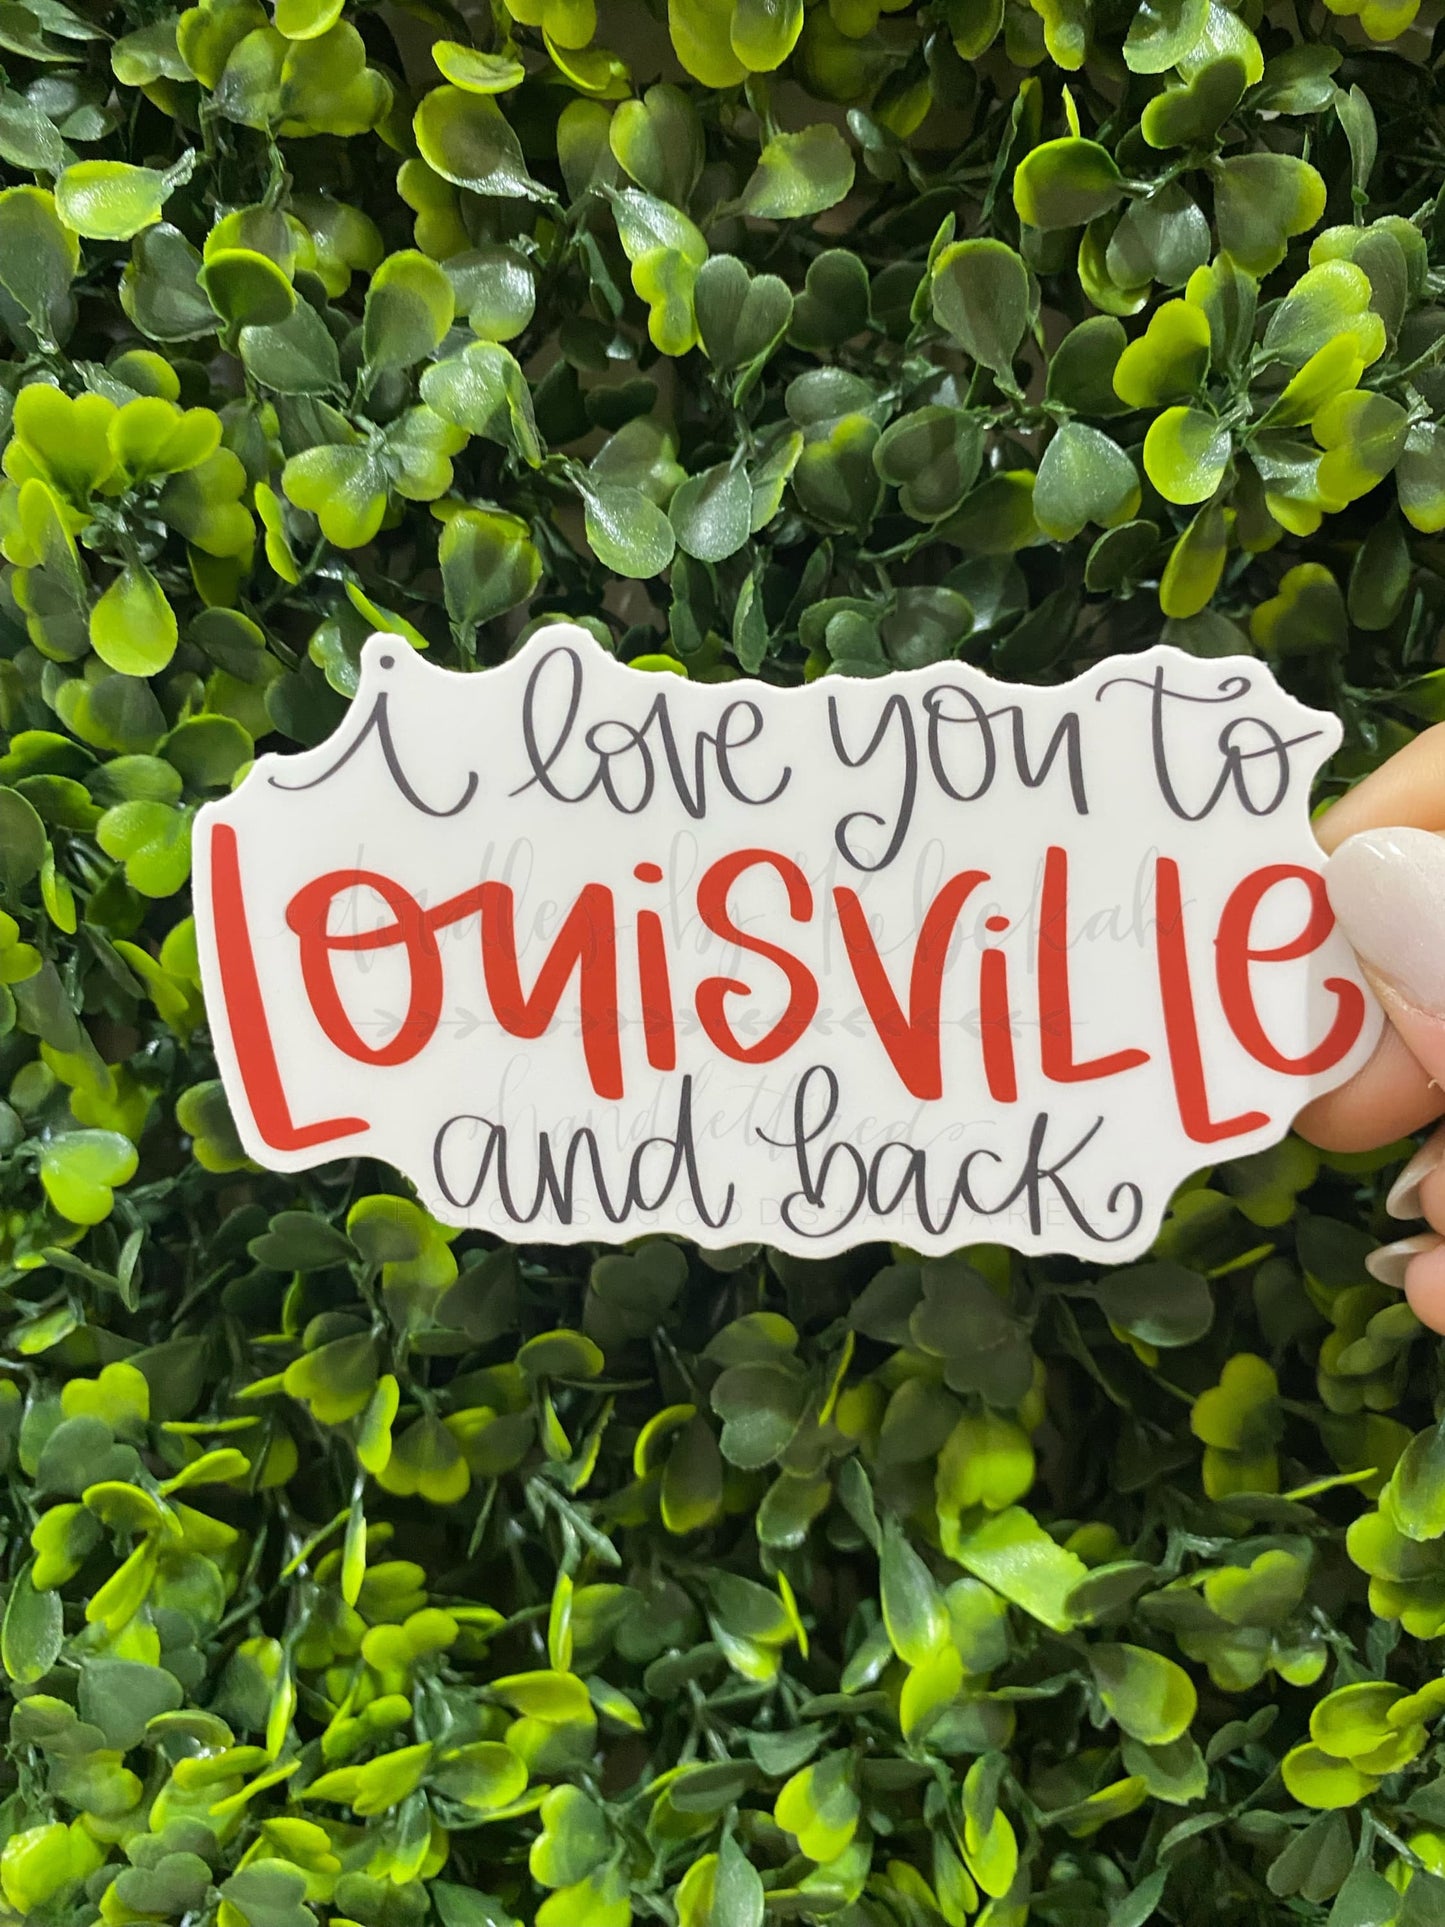 i love you to
LouisViLLe
and back
doodles by Rebekah
handlettered
DESIGNS GOODS + APPAREL